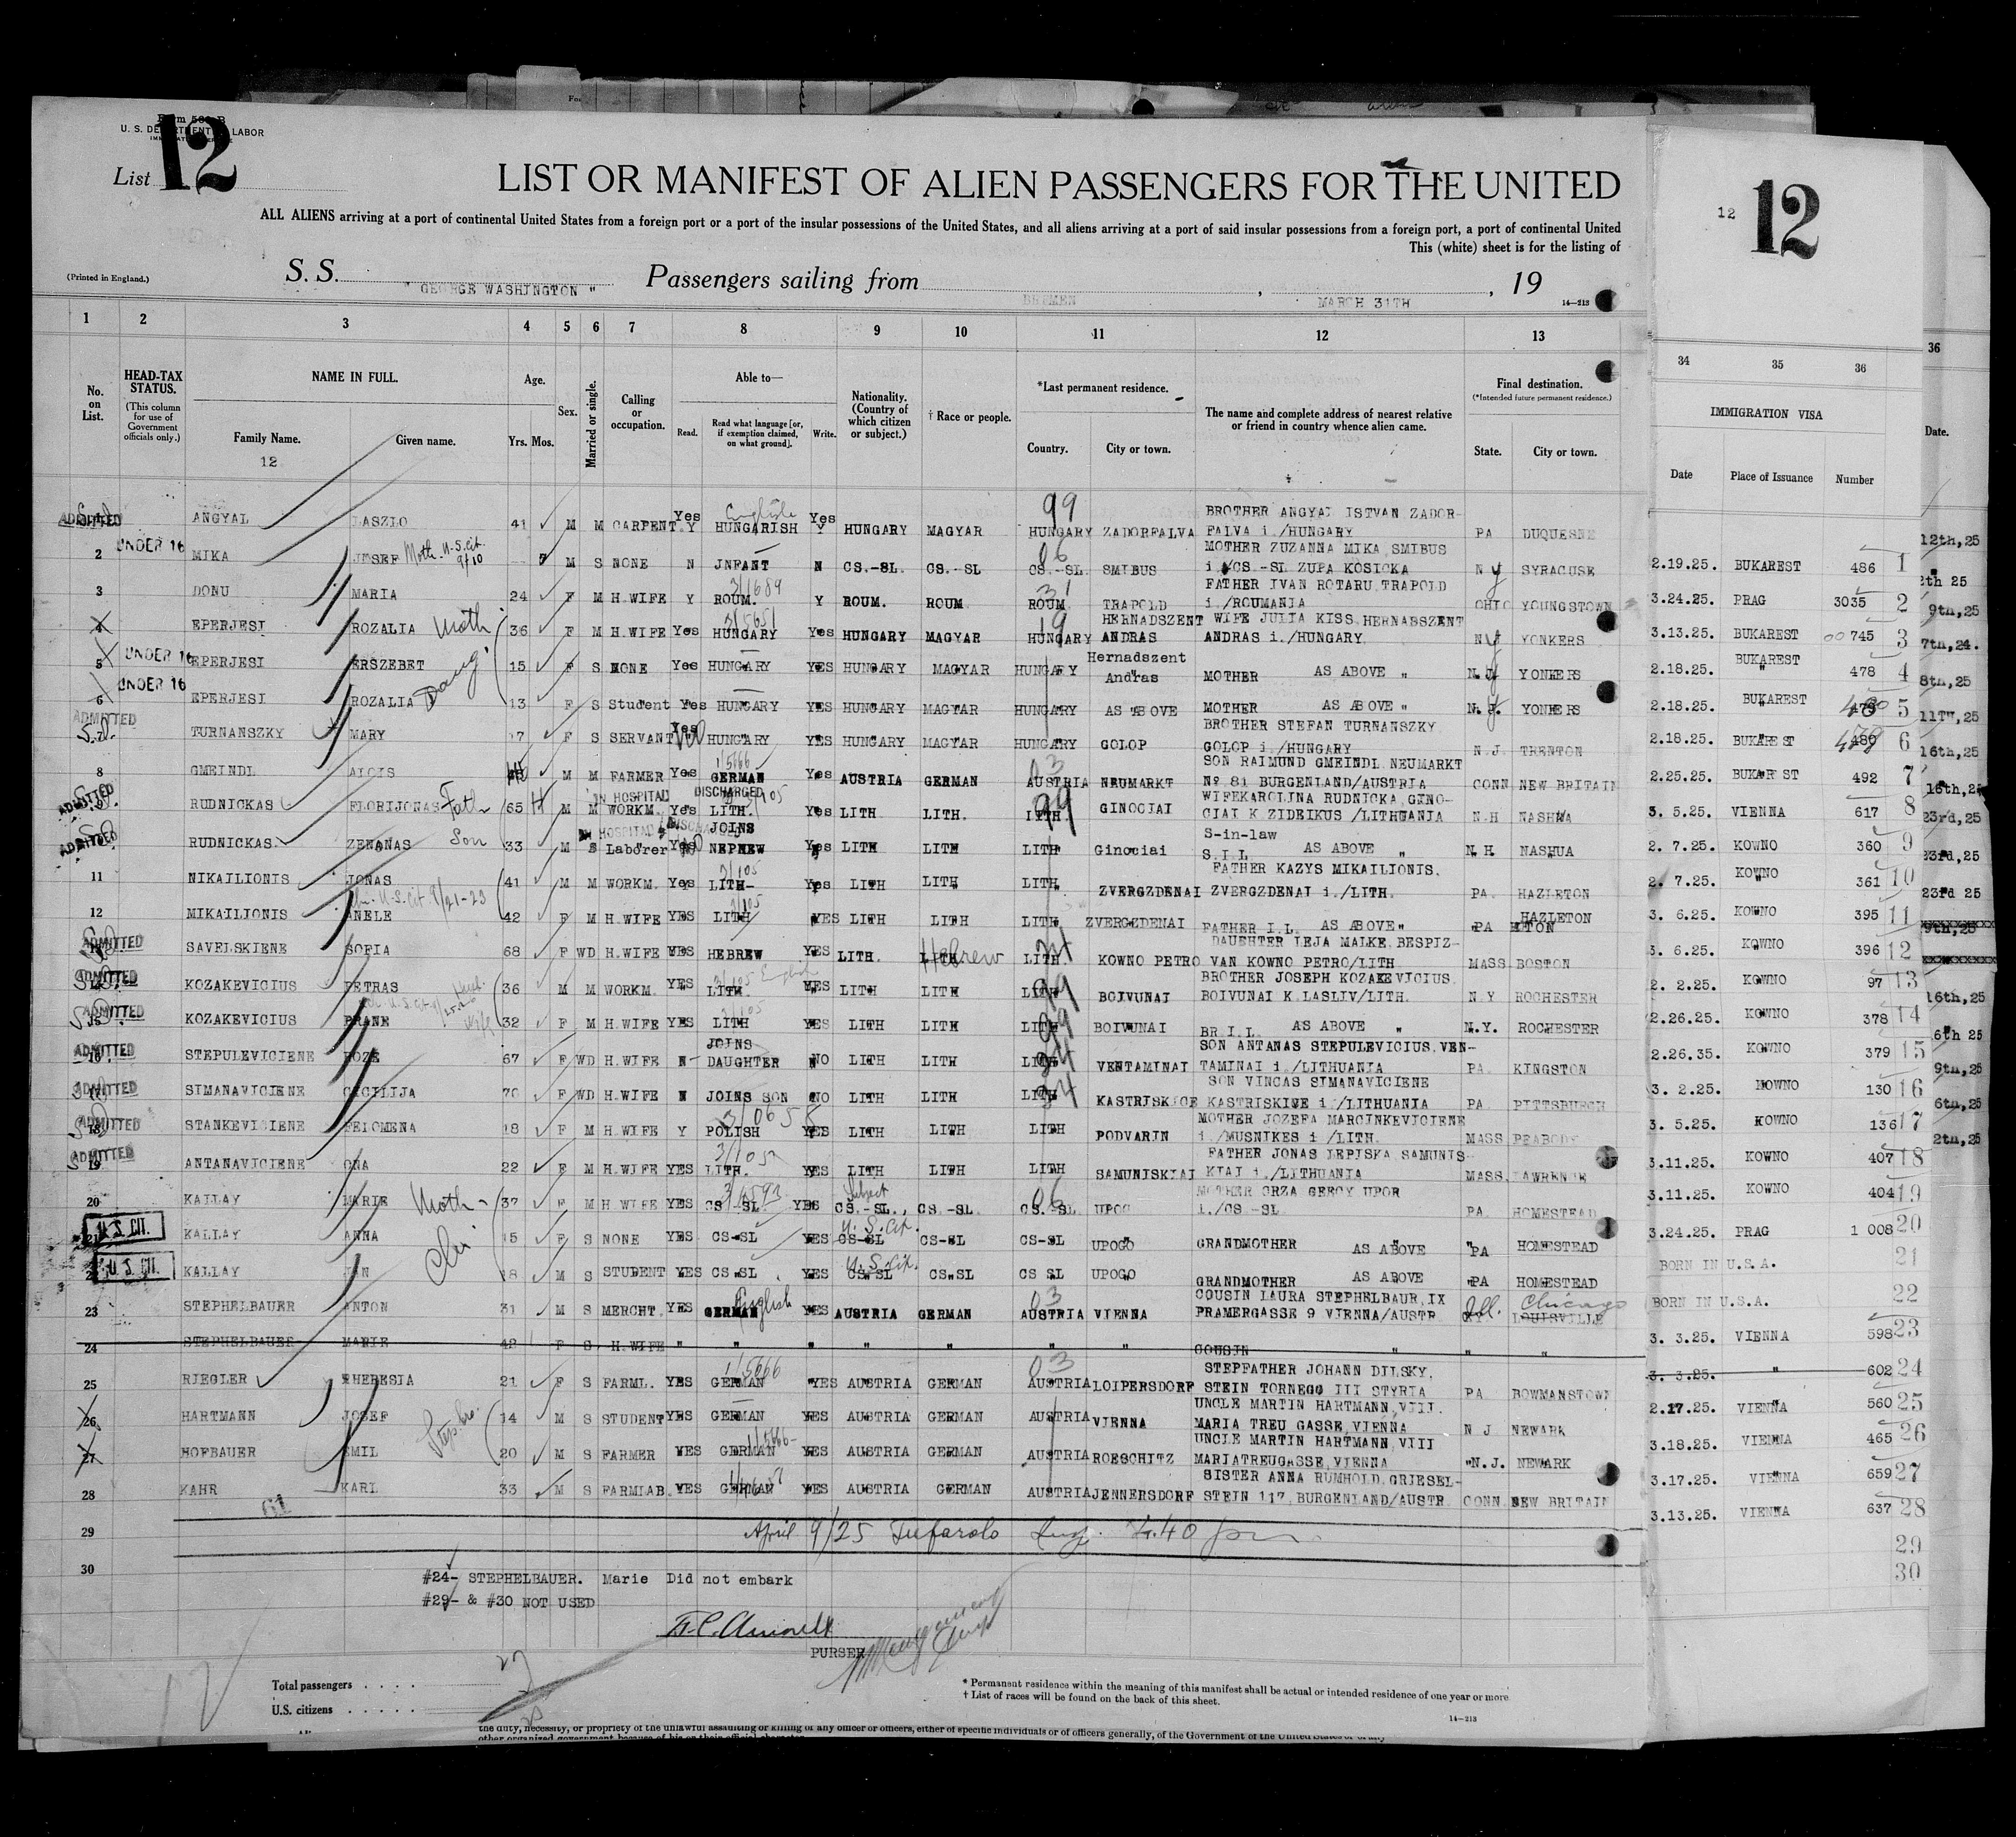 12
Form 500 B
U. S. DEPARTMENT OF LABOR
List 12
LIST OR MANIFEST OF ALIEN PASSENGERS FOR THE UNITED
ALL ALIENS arriving at a port of continental United States from a foreign port or a port of the insular possessions of the United States, and all aliens arriving at a port of said insular possessions from a foreign port, a port of continental United
This (white) sheet is for the listing of
(Printed in England.)
S. S. " GEORGE WASHINGTON " Passengers sailing from BREMEN , MARCH 31TH , 19
14—213
1 2 3 4 5 6 7 8 9 10 11 12 13
No. on List.
HEAD-TAX STATUS. (This column for use of Government officials only.)
NAME IN FULL. Family Name. Given name.
12
Age. Yrs. Mos.
Sex.
Married or single.
Calling or occupation.
Able to— Read. Read what language [or, if exemption claimed, on what ground]. Write.
Nationality. (Country of which citizen or subject.)
† Race or people.
*Last permanent residence. Country. City or town.
The name and complete address of nearest relative or friend in country whence alien came.
Final destination. (*Intended future permanent residence.) State. City or town.
ADMITTED ANGYAL LASZLO 41 M M CARPENT. Yes Y English HUNGARISH Yes Y HUNGARY MAGYAR 99 HUNGARY ZADORFALVA BROTHER ANGYAL ISTVAN ZADOR-FALVA i./HUNGARY PA DUQUESNE
2 UNDER 16 MIKA JOSEF Moth. U.S. Cit. 9/10 7 M S NONE N INFANT N CS.-SL. CS.-SL 06 CS.-SL. SMIBUS MOTHER ZUZANNA MIKA SMIBUS i./CS.-SL ZUPA KOSICKA N Y SYRACUSE
3 DONU MARIA 24 F M H.WIFE Y 3/1689 ROUM. Y ROUM. ROUM 31 ROUM TRAPOLD FATHER IVAN ROTARU TRAPOLD i./ROUMANIA OHIO YOUNGSTOWN
4 EPERJESI ROZALIA Moth 36 F M H.WIFE Yes 3/5651 HUNGARY Yes HUNGARY MAGYAR 19 HUNGARY HERNADSZENT ANDRAS WIFE JULIA KISS HERNASSZENT ANDRAS i./HUNGARY N Y YONKERS
5 UNDER 16 EPERJESI ERSZEBET 15 F S NONE Yes HUNGARY YES HUNGARY MAGYAR HUNGARY Hernadszent Andras MOTHER AS ABOVE " N.Y YONKERS
6 UNDER 16 EPERJESI ROZALIA Daug 13 F S Student Yes HUNGARY YES HUNGARY MAGYAR HUNGARY AS ABOVE MOTHER AS ABOVE " N.Y. YONKERS
ADMITTED 7 TURNANSZKY MARY 17 F S SERVANT Yes HUNGARY YES HUNGARY MAGYAR HUNGARY GOLOP BROTHER STEFAN TURNANSZKY GOLOP i./HUNGARY N.J. TRENTON
8 GMEINDL ALOIS M M FARMER Yes 1/5666 GERMAN Yes AUSTRIA GERMAN 03 AUSTRIA NEUMARKT SON RAIMUND GMEINDL NEUMARKT No 81 BURGENLAND/AUSTRIA CONN NEW BRITAIN
ADMITTED 9 RUDNICKAS FLORIJONAS Fath 65 M M IN HOSPITAL WORKM. Yes DISCHARGED 3/105 LITH. Yes LITH LITH. 99 LITH. GINOCIAI WIFE KAROLINA RUDNICKA, GINO-CIAI K ZIDEIKUS /LITHUANIA N.H NASHUA
ADMITTED RUDNICKAS ZENANAS Son 33 M S IN HOSPITAL & DISCHARGED Laborer Yes JOINS NEPHEW Yes LITH LITH LITH Ginociai S-in-law S.I.L AS ABOVE " N.H. NASHUA
11 NIKAILIONIS JONAS 41 M M WORKM. Yes 3/105 LITH- Yes LITH LITH LITH. ZVERGZDENAI FATHER KAZYS MIKAILIONIS. ZVERGZDENAI i./LITH. PA. HAZLETON
12 MIKAILIONIS Chi. U.S. Cit. 9/21-23 ANELE 42 F M H.WIFE YES 3/105 LITH YES LITH LITH LITH. ZVERGZDENAI FATHER I.L. AS ABOVE " PA HAZLETON
ADMITTED SAVELSKIENE SOFIA 68 F WD H.WIFE YES HEBREW YES LITH. Hebrew LITH. KOWNO PETRO DAUGHTER LEJA MALKE BESPIZ-VAN KOWNO PETRO/LITH. MASS BOSTON
ADMITTED KOZAKEVICIUS PETRAS Husb. 36 M M WORKM. YES 3/105 English LITH. YES LITH LITH 99 LITH BOIVUNAI BROTHER JOSEPH KOZAKEVICIUS. BOIVUNAI K.LASLIV/LITH. N.Y ROCHESTER
ADMITTED 15 KOZAKEVICIUS PRANE Wife 32 F M H.WIFE YES 3/105 LITH YES LITH LITH 99 LITH BOIVUNAI BR.I.L. AS ABOVE " N.Y. ROCHESTER
ADMITTED 16 STEPULEVICIENE ROZE 67 F WD H.WIFE N- JOINS DAUGHTER NO LITH LITH LITH VENTAMINAI SON ANTANAS STEPULEVICIUS, VEN-TAMINAI i./LITHUANIA PA. KINGSTON
ADMITTED 17 SIMANAVICIENE CICILIJA 70 F WD H.WIFE N JOINS SON NO LITH LITH LITH KASTRISKICE SON VINCAS SIMANAVICIENE KASTRISKICE i./LITHUANIA PA. PITTSBURGH
ADMITTED 18 STANKEVICIENE FELOMENA 18 F M H.WIFE Y POLISH YES LITH LITH LITH PODVARIN MOTHER JOZEFA MARCINKEVICIENE i./MUSNIKES i /LITH. MASS PEABODY
ADMITTED 19 ANTANAVICIENE ONA 22 F M H.WIFE YES LITH. YES LITH LITH LITH SAMUNISKIAI FATHER JONAS LEPJSKA SAMUNIS-KIAI i./LITHUANIA MASS. LAWRENCE
20 KALLAY MARIE Moth- 37 F M H WIFE YES CS SL YES Subject CS.-SL., CS.-SL. 06 CS.-SL UPOG MOTHER ORZA GEROY UPOR i./CS.-SL PA HOMESTEAD
U.S. CIT. 21 KALLAY ANNA Chi 15 F S NONE YES CS-SL YES U.S. Cit. CS-SL CS-SL CS-SL UPOGO GRANDMOTHER AS ABOVE " PA HOMESTEAD
U.S. CIT. KALLAY JAN 18 M S STUDENT YES CS SL YES U.S. Cit. CS SL CS SL CS SL UPOGO GRANDMOTHER AS ABOVE " PA HOMESTEAD
23 STEPHELBAUER ANTON 31 M S MERCHT. YES English GERMAN YES AUSTRIA GERMAN 03 AUSTRIA VIENNA COUSIN LAURA STEPHELBAUR, IX PRAMERGASSE 9 VIENNA/AUSTR Ill. Chicago KY LOUISVILLE
24 STEPHELBAUER MARIE 42 F S H.WIFE " " " " " " " COUSIN " " "
25 RIEGLER THERESIA 21 F S FARML. YES 1/5666 GERMAN YES AUSTRIA GERMAN 03 AUSTRIA LOIPERSDORF STEPFATHER JOHANN DILSKY, STEIN TORNEGG III STYRIA PA BOWMANSTOWN
26 HARTMANN JOSEF Step. bro. 14 M S STUDENT YES GERMAN YES AUSTRIA GERMAN AUSTRIA VIENNA UNCLE MARTIN HARTMANN, VIII. MARIA TREU GASSE, VIENNA N J NEWARK
27 HOFBAUER EMIL 20 M S FARMER YES 1/5666- GERMAN YES AUSTRIA GERMAN AUSTRIA ROESCHITZ UNCLE MARTIN HARTMANN, VIII MARIATREUGASSE, VIENNA " N.J. NEWARK
28 KAHR KARL 33 M S FARMLAB. YES GERMAN YES AUSTRIA GERMAN AUSTRIA JENNERSDORF SISTER ANNA RUMHOLD, GRIESEL-STEIN 117, BURGENLAND/AUSTR CONN. NEW BRITAIN
29 April 9/25 Tufarolo Insp. 4.40 pm
30
#24- STEPHELBAUER. Marie Did not embark
#29- & #30 NOT USED
PURSER
Total passengers . . . . 27
U.S. citizens . . . . .
* Permanent residence within the meaning of this manifest shall be actual or intended residence of one year or more
† List of races will be found on the back of this sheet.
14—213
the duty, necessity, or propriety of the unlawful assaulting or killing of any officer or officers, either of specific individuals or of officers generally, of the Government of the United States or of any
12 12
34 35 36
IMMIGRATION VISA
Date Place of Issuance Number
2.19.25. BUKAREST 486 1
3.24.25. PRAG 3035 2
3.13.25. BUKAREST 745 3
2.18.25. BUKAREST 478 4
2.18.25. BUKAREST 480 5
2.18.25. BUKAREST 479 6
2.25.25. BUKAREST 492 7
3. 5.25. VIENNA 617 8
2. 7.25. KOWNO 360 9
2. 7.25. KOWNO 361 10
3. 6.25. KOWNO 395 11
3. 6.25. KOWNO 396 12
2. 2.25. KOWNO 97 13
2.26.25. KOWNO 378 14
2.26.35. KOWNO 379 15
3. 2.25. KOWNO 130 16
3. 5.25. KOWNO 136 17
3.11.25. KOWNO 407 18
3.11.25. KOWNO 404 19
3.24.25. PRAG 1 008 20
BORN IN U.S.A. 21
BORN IN U.S.A. 22
3. 3.25. VIENNA 598 23
3. 3.25. " 602 24
2.17.25. VIENNA 560 25
3.18.25. VIENNA 465 26
3.17.25. VIENNA 659 27
3.13.25. VIENNA 637 28
29
30
36
Date.
12th,25
2th 25
9th,25
7th,24.
8th,25
11T",25
16th,25
16th,25
23rd,25
23rd,25
23rd 25
9th,25
16th,25
6th 25
9th,25
6th,25
2th,25